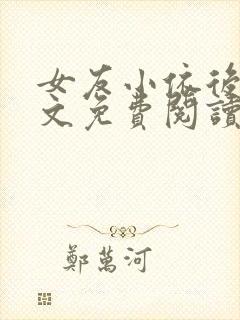 女友小依後
文免費閱讀
鄭萬河